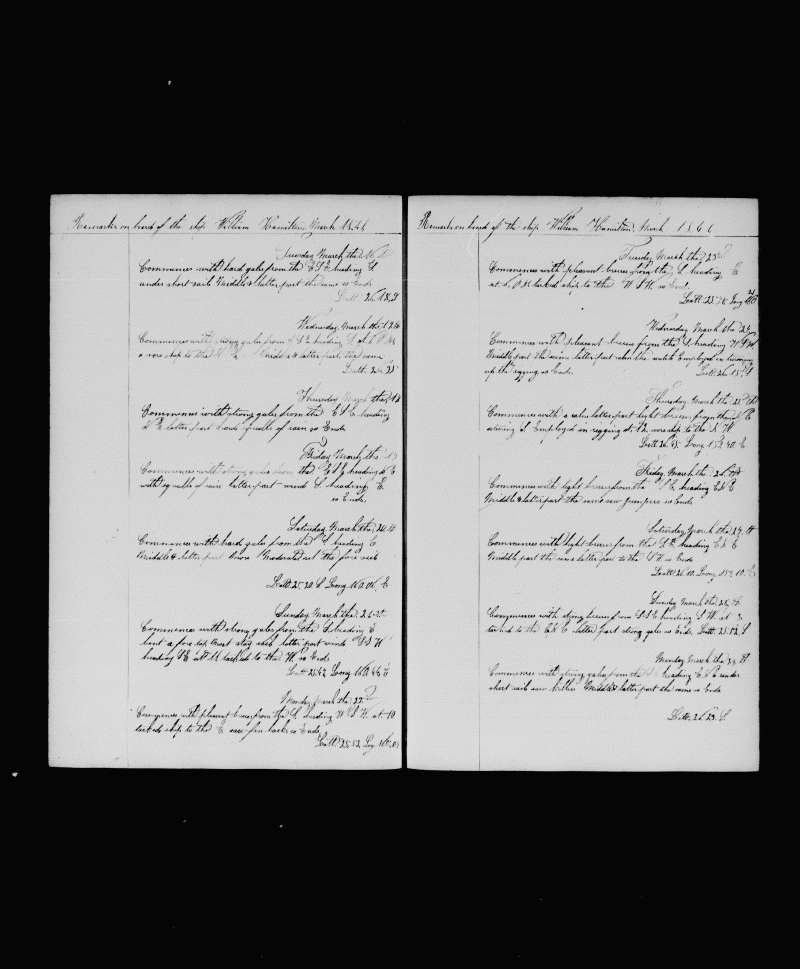 Remarks on board of the ship William Hamilton March 1846
Tuesday March the 16
Commences with hard gales from the E S E heading S
under short sails Middle & latter part the same so Ends
Latt 26 18 S
Wednesday March the
Commences with strong gales from S E heading at 6 P M
wore ship to the Middle & latter part the same
Latt. 26 25
Thursday March the 18
Commences with strong gales from the E S E heading
N E latter part hard squalls of rain so Ends
Friday March the 19
Commences with strong gales from the E S E heading N E
with squalls of rain latter part wind S heading E
so Ends,
Saturday March the 20
Commences with hard gales from the S heading E
Middle & latter part more Moderate set the fore sail
Latt 25,20 S Long 160.06, E
Sunday March the 21 st
Commences with strong gales from the S heading E
bent a fore top Mast stay sail latter part winds S S W
heading S E at M tacked to the W. so Ends
Latt 25.42 Long 160 44 E
Monday March the 22
Commences with pleasant breeses from the S heading W S W. at 10
tacked ship to the E saw fin backs so Ends,
Latt 25 52 Log
Remarks on board of the ship William Hamilton. March 1846
Tuesday March the 23
Commences with pleasant breeses from the S heading E
at 6. P M tacked ship to the W S W so Ends,
Latt 25 Long
Wednesday March the 24
Commences with pleasant breeses from the S. heading W S W
Middle part the same latter part calm the watch Employed in
up the rigging so Ends.
Latt. 26 15, S
Thursday March the 25
Commences with a calm latter part light breeses from the
steering S. Employed in rigging at 12 wore ship to the S W
Latt 26 45. Long 159 40 E
Friday March the 26
Commences with light breeses from the S E heading E N E
Middle & latter part the same saw Jumpers so Ends
Saturday March the 27
Commences with light breeses from the S E heading E N E
Middle part the same latter part to the S W so Ends
Latt 26 10. Long, 159, 10. E
Sunday March the 28
Commences with strong breeses from S S E heading S W. at 3.
tacked to the E N E latter part strong gales so Ends. Latt. 25.52, S
Monday March the 29
Commences with strong gales from the S heading E N E under
short sails saw killers Middle & latter part the same so Ends
Latt. 26 23. S.